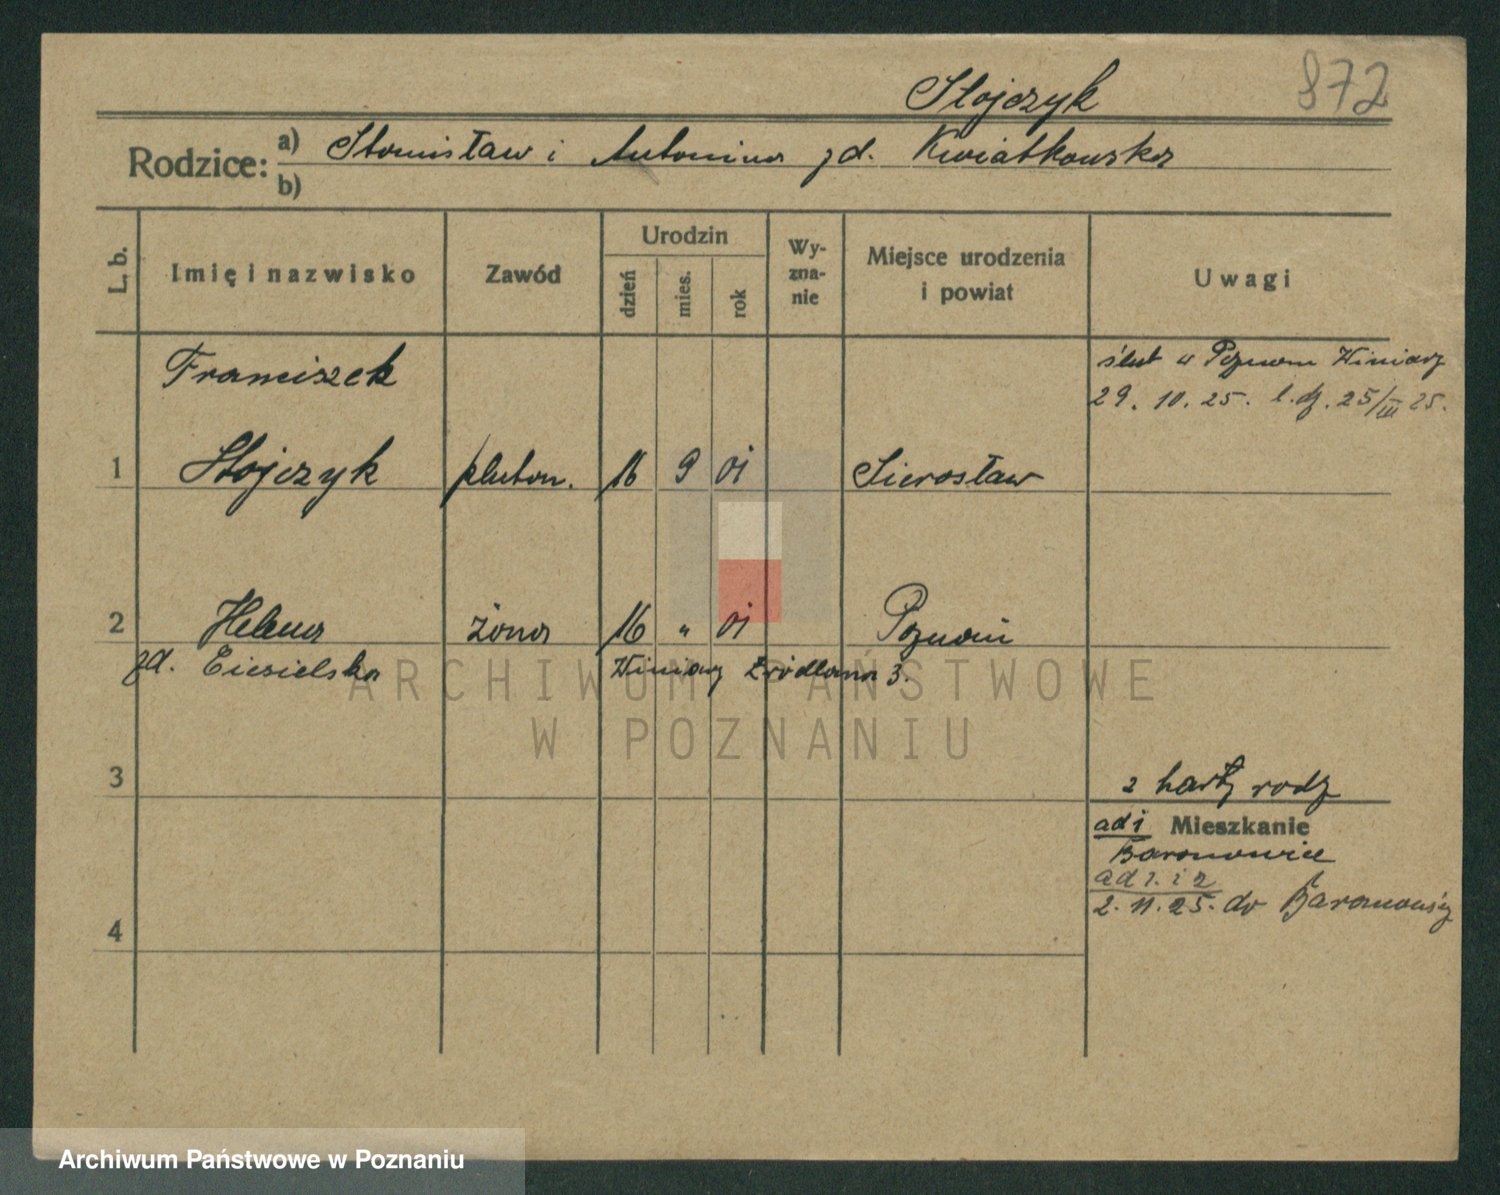 Stojczyk 872
Rodzice: a) Stanisław i Antonina zd. Kwiatkowska
b)
L. b. Imię i nazwisko Zawód Urodzin dzień mies. rok Wy-zna-nie Miejsce urodzenia i powiat Uwagi
Franciszek
ślub w Poznaniu Winiary
29. 10. 25. l. dz. 25/III 25.
1 Stojczyk pluton. 16 9 01 Sierosław
2 Helena żona 16 " 01 Poznań
zd. Ciesielska Winiary Źródlana 3.
3
2 karty rodz
ad 1 Mieszkanie
Baranowice
ad 1. i 2
2. 11. 25. do
4
ARCHIWUM PAŃSTWOWE
W POZNANIU
Archiwum Państwowe w Poznaniu